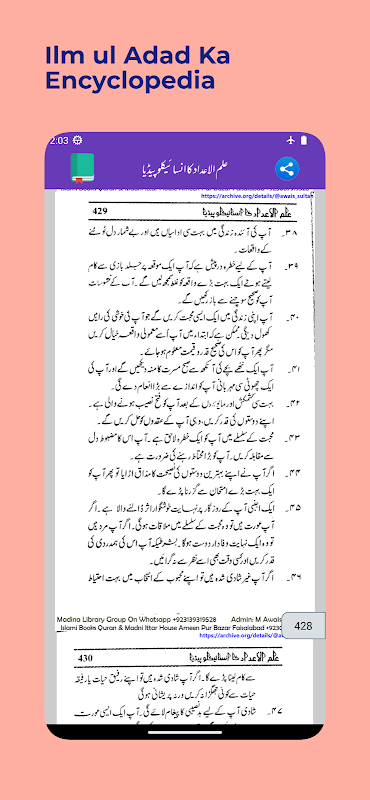 Ilm ul Adad Ka
Encyclopedia
2:03
علم الاعداد کا انسائیکلوپیڈیا
https://archive.org/details/@awais_sultan
علم الاعداد کا انسائیکلوپیڈیا 429
۳۸۔ آپ کی آئندہ زندگی میں بہت سی اداسیاں ہیں اور بے شمار دل ٹوٹنے
کے واقعات۔
۳۹۔ آپ کے لیے خطرہ درپیش ہے کہ آپ ایک موقعہ پر جلد بازی سے کام
لیتے ہوئے ایک بہت بڑے واقعہ کو غلط سمجھ لیں گے۔ آپ کے تعصبات
آپ کو صحیح سوچنے سے باز رکھیں گے۔
۴۰۔ آپ اپنی زندگی میں ایک ایسی محبت کریں گے جو آپ نئی خوشی کی راہیں
کھول دیگی ممکن ہے کہ ابتداء میں آپ اسے معمولی واقعہ خیال کریں
مگر پھر آپ کو اس کی صحیح قدر و قیمت معلوم ہو جائے۔
۴۱۔ آپ ایک ننھے بچے کی آنکھ سے صبح مسرت کا منہ دیکھیں گے اور آپ کی
ایک چھوٹی سی مہربانی آپ کو اندازے سے بڑا انعام دے گی۔
۴۲۔ بہت سی کشمکش اور مایوسی کے بعد آپ کو فتح نصیب ہونے والی ہے۔
اپنے دوستوں کی قدر کریں، وہی آپ کے عقدوں کو حل کریں گے۔
۴۳۔ محبت کے سلسلے میں آپ کو ایک خطرہ لاحق ہے۔ آپ اس کا مضبوط دل
سے مقابلہ کریں۔ آپ کو بڑا محتاط رہنے کی ضرورت ہے۔
۴۴۔ اگر آپ نے اپنے بہترین دوستوں کی نصیحت کا مذاق اڑایا تو پھر آپ کو
ایک بہت بڑے امتحان سے گزرنا پڑے گا۔
۴۵۔ ایک اجنبی آپ کے روزگار پر نہایت خوشگوار اثر ڈالنے والا ہے۔ اگر
آپ عورت ہیں تو وہ محبت کے سلسلے میں ملاقات ہوگی۔ اگر آپ مرد ہیں
تو وہ ایک نہایت وفادار دوست ہوگا۔ بشرطیکہ آپ اس کی ہمدردی کی
قدر کریں اور کسی وقت بھی اسے نظر سے نہ گرائیں۔
۴۶۔ اگر آپ غیر شادی شدہ ہیں تو اپنے محبوب کے انتخاب میں بہت احتیاط
Madina Library Group On Whatsapp +923139319528 Admin: M Awais
Islami Books Quran & Madni Ittar House Ameen Pur Bazar Faisalabad +923
428
https://archive.org/details/@awais_sultan
علم الاعداد کا انسائیکلوپیڈیا 430
سے کام لینا پڑے گا۔ اگر آپ شادی شدہ ہیں تو اپنے رفیق حیات یا رفیقہ
حیات سے کوئی جھگڑا نہ کریں ورنہ پریشانی ہوگی
۴۷۔ شادی آپ کے لیے بدنصیبی کا پیغام لائے گی۔ آپ ایک ایسی عورت